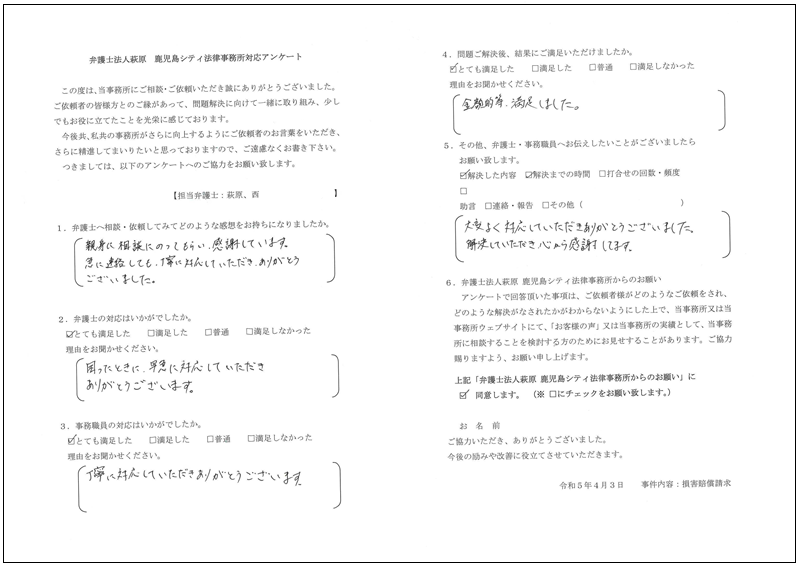 弁護士法人萩原 鹿児島シティ法律事務所対応アンケート
この度は、当事務所にご相談・ご依頼いただき誠にありがとうございました。
ご依頼者の皆様方とのご縁があって、問題解決に向けて一緒に取り組み、少し
でもお役に立てたことを光栄に感じております。
今後共、私共の事務所がさらに向上するようにご依頼者のお言葉をいただき、
さらに精進してまいりたいと思っておりますので、ご遠慮なくお書き下さい。
つきましては、以下のアンケートへのご協力をお願い致します。
【担当弁護士：萩原、西 】
１．弁護士へ相談・依頼してみてどのような感想をお持ちになりましたか。
親身に相談にのってもらい、感謝しています。
急に連絡しても、丁寧に対応していただき、ありがとう
ございました。
２．弁護士の対応はいかがでしたか。
☑とても満足した □満足した □普通 □満足しなかった
理由をお聞かせください。
困ったときに、早急に対応していただき
ありがとうございます。
３．事務職員の対応はいかがでしたか。
☑とても満足した □満足した □普通 □満足しなかった
理由をお聞かせください。
丁寧に対応していただきありがとうございます
４．問題ご解決後、結果にご満足いただけましたか。
☑とても満足した □満足した □普通 □満足しなかった
理由をお聞かせください。
金額的等、満足しました。
５．その他、弁護士・事務職員へお伝えしたいことがございましたら
お願い致します。
☑解決した内容 ☑解決までの時間 □打合せの回数・頻度
□
助言 □連絡・報告 □その他（ ）
大変よく対応していただきありがとうございました。
解決していただき心から感謝してます。
６．弁護士法人萩原 鹿児島シティ法律事務所からのお願い
アンケートで回答頂いた事項は、ご依頼者様がどのようなご依頼をされ、
どのような解決がなされたかがわからないようにした上で、当事務所又は当
事務所ウェブサイトにて、「お客様の声」又は当事務所の実績として、当事務
所に相談することを検討する方のためにお見せすることがあります。ご協力
賜りますよう、お願い申し上げます。
上記「弁護士法人萩原 鹿児島シティ法律事務所からのお願い」に
☑ 同意します。 （※ □にチェックをお願い致します。）
お 名 前
ご協力いただき、ありがとうございました。
今後の励みや改善に役立てさせていただきます。
令和５年４月３日 事件内容：損害賠償請求